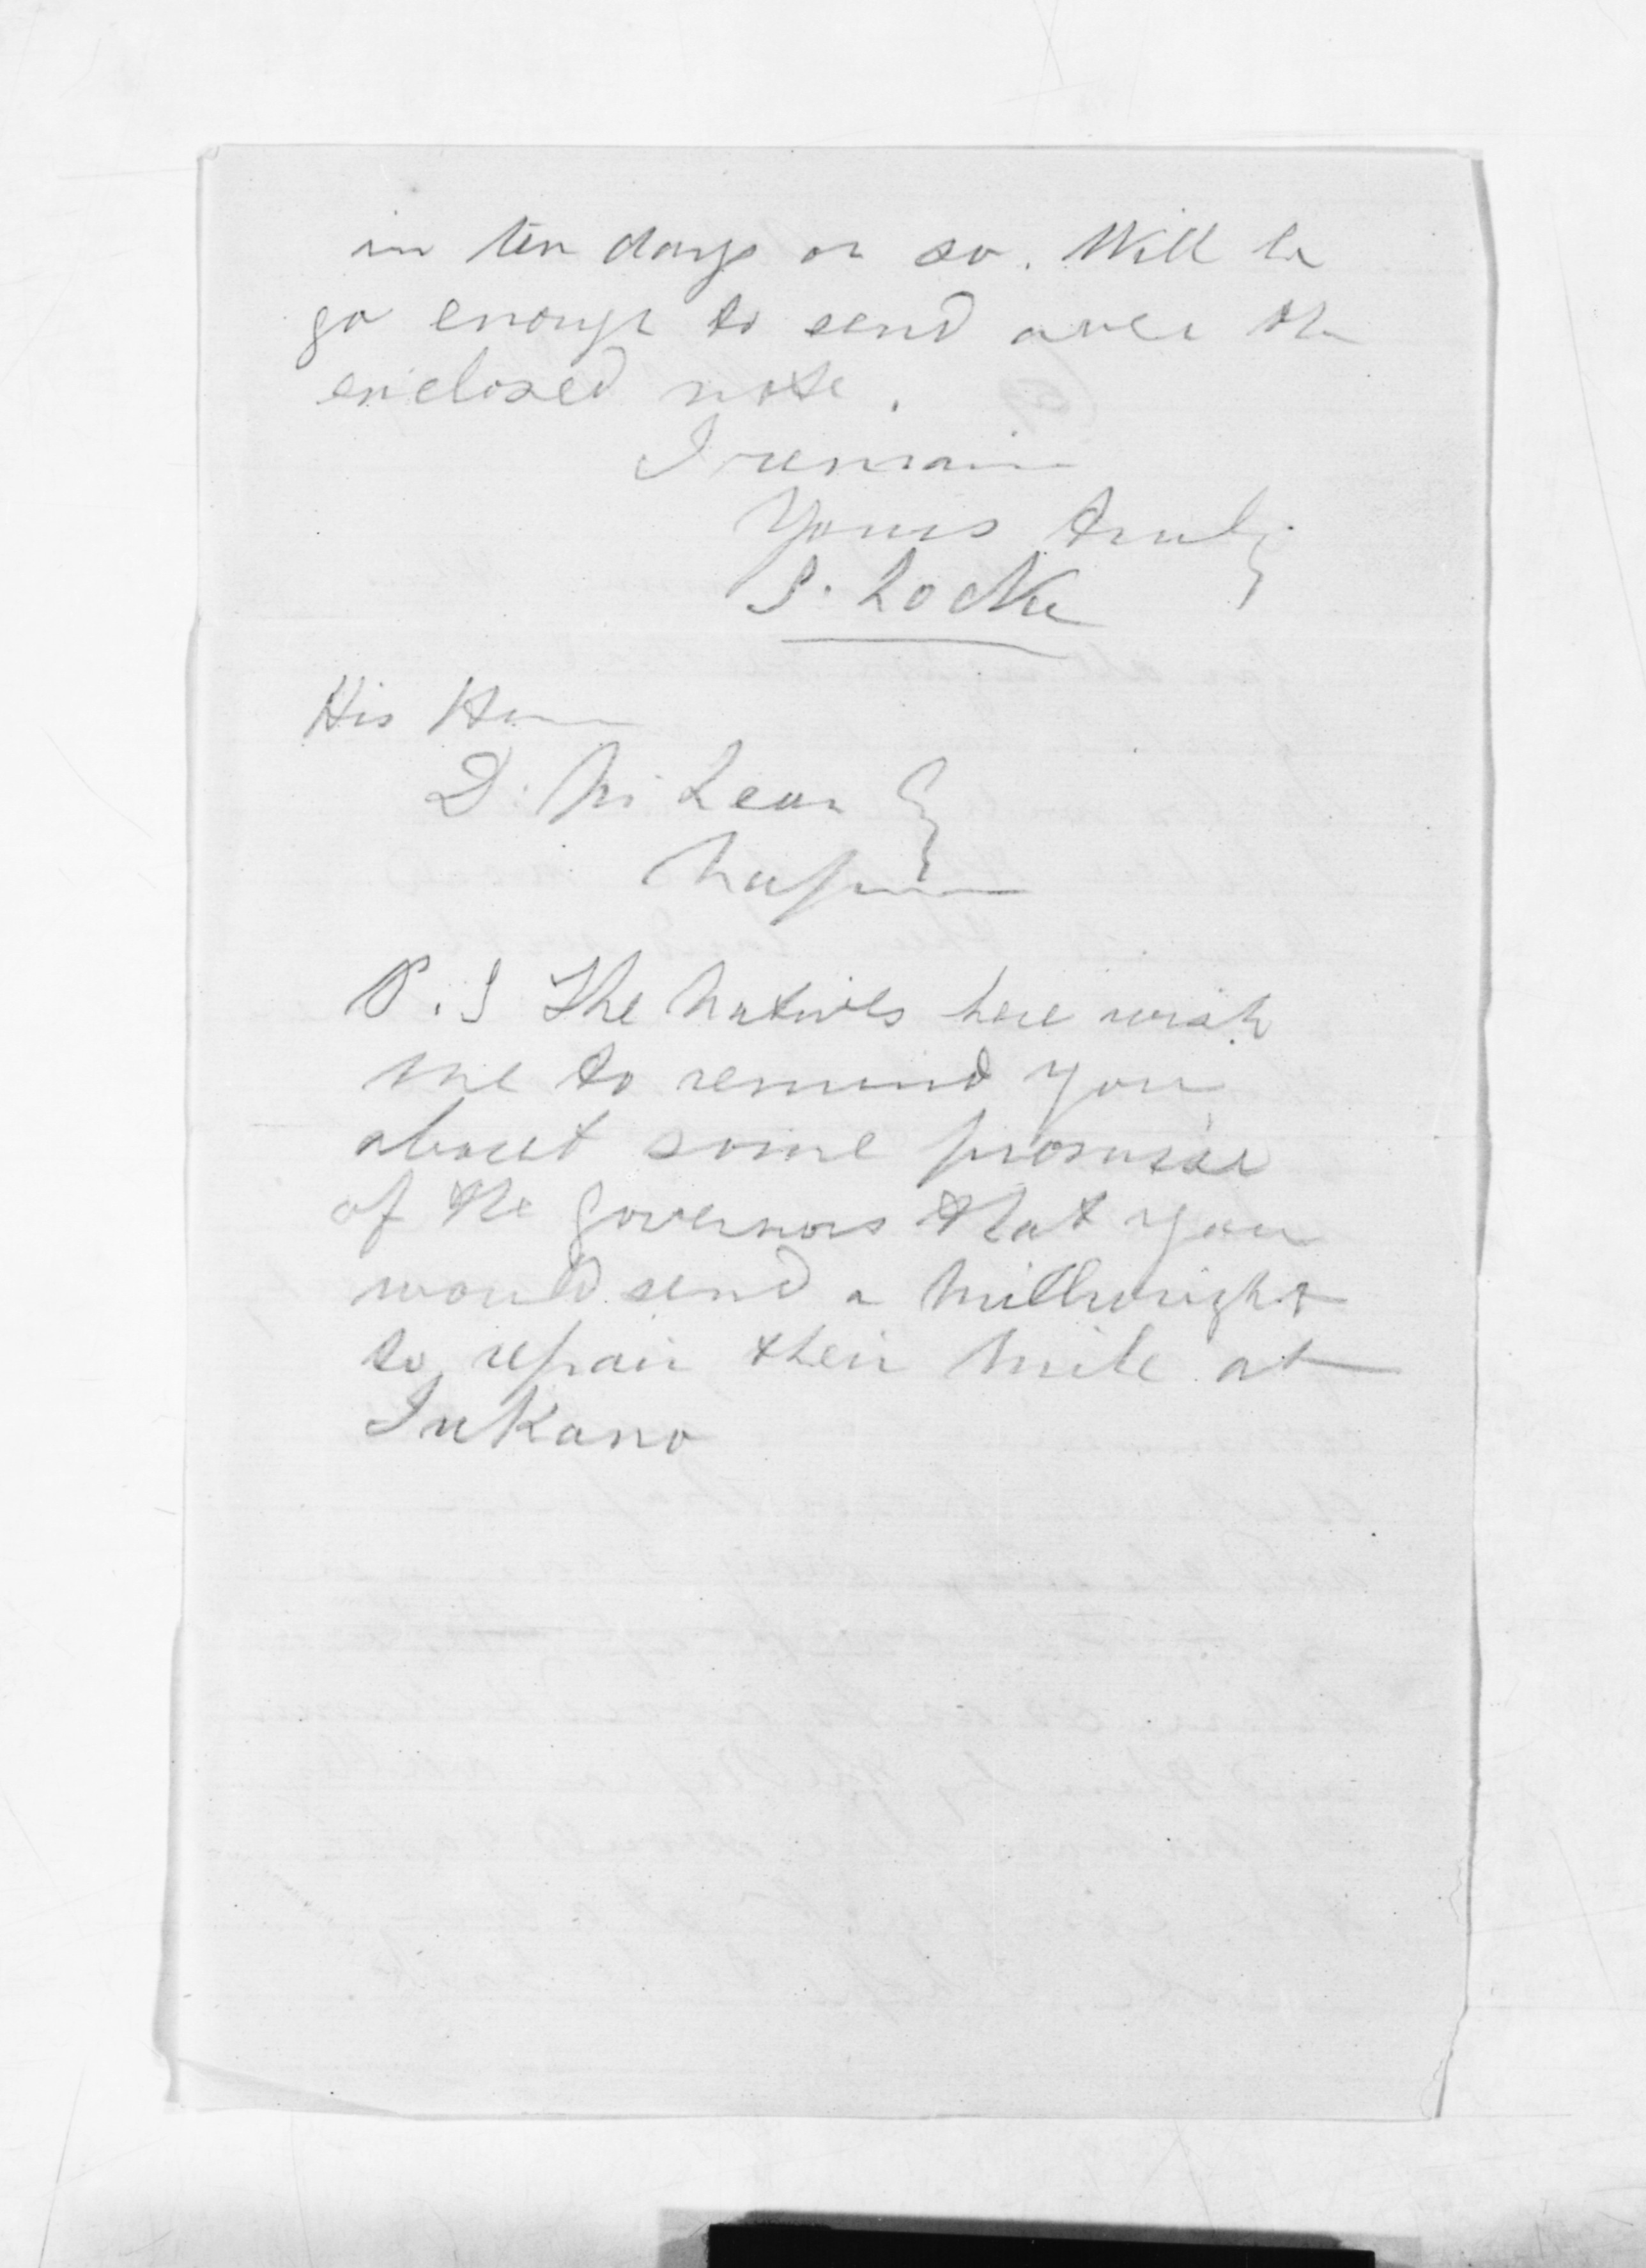 in ten days or so. Will be
go enough to send over the
enclosed note.
I remain
Yours truly
S. Locke
His Honor
D. McLean
Napier
P.S The Natives here wish
me to remind you
about some promise
of the Governors that you
would send a Millwright
to repair their Mill at